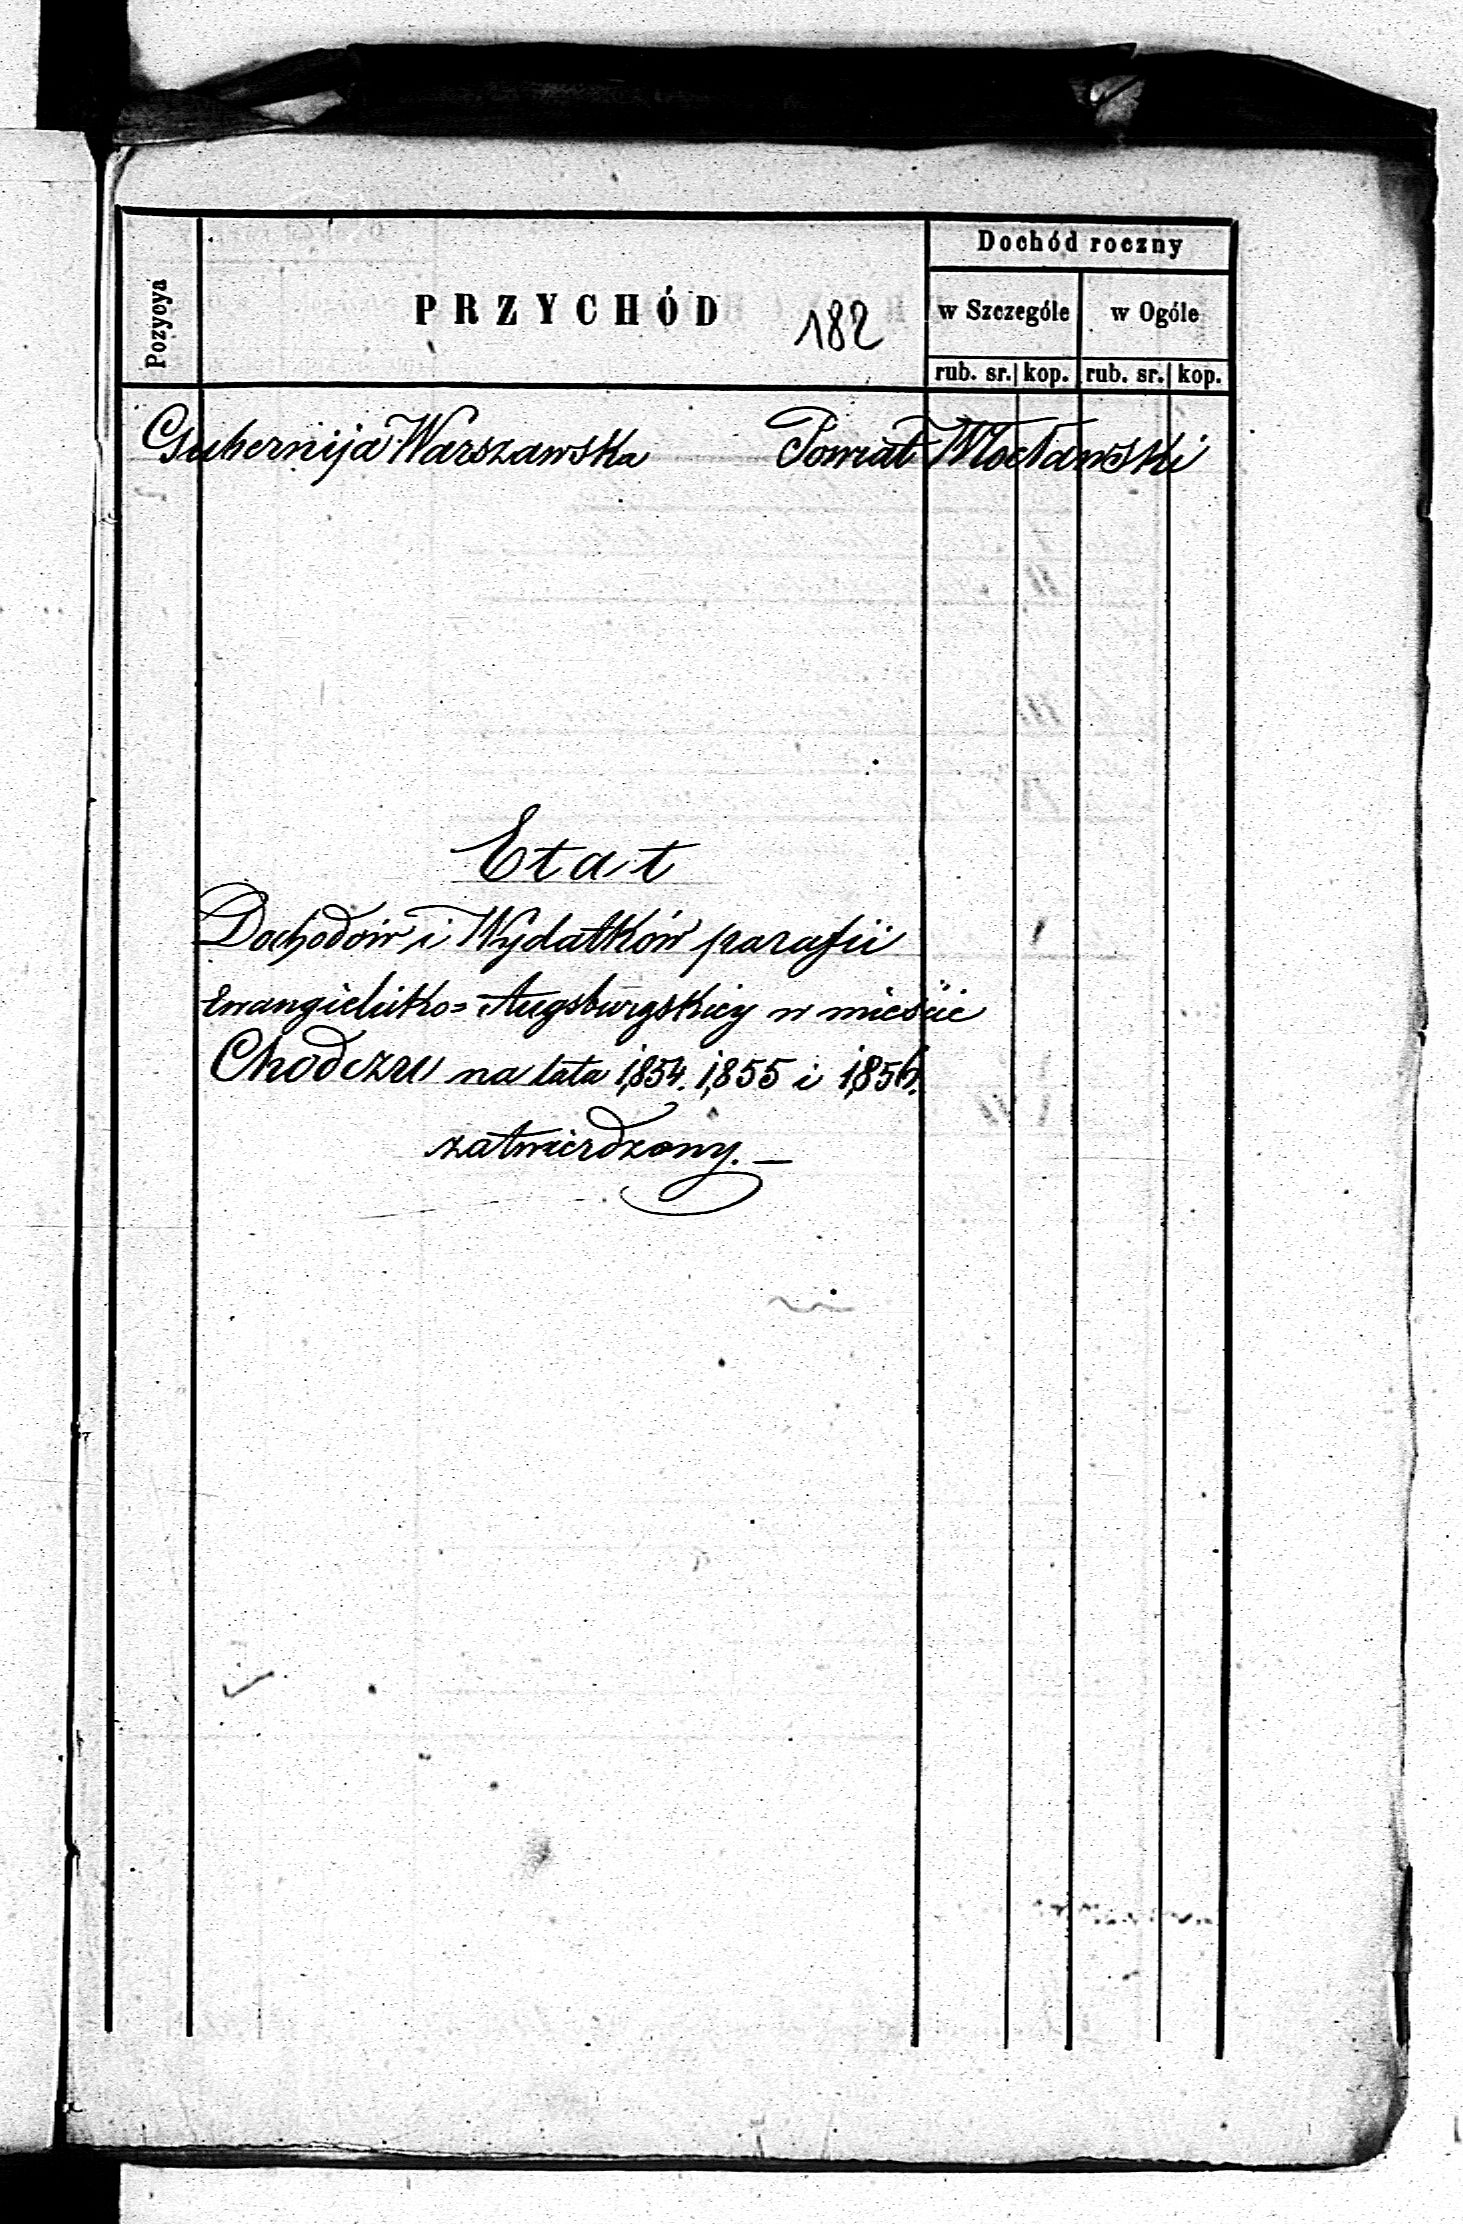 Dochód roczny
Pozycya
PRZYCHÓD
182
w Szczególe
w Ogóle
rub. sr.
kop.
rub. sr.
kop.
Gubernija Warszawska Powiat Włocławski
Etat
Dochodów i Wydatków parafii
Ewangielicko= Augsburgskiey w mieście
Chodczu na lata 1,854. 1,855 i 1,856.
zatwierdzony. —